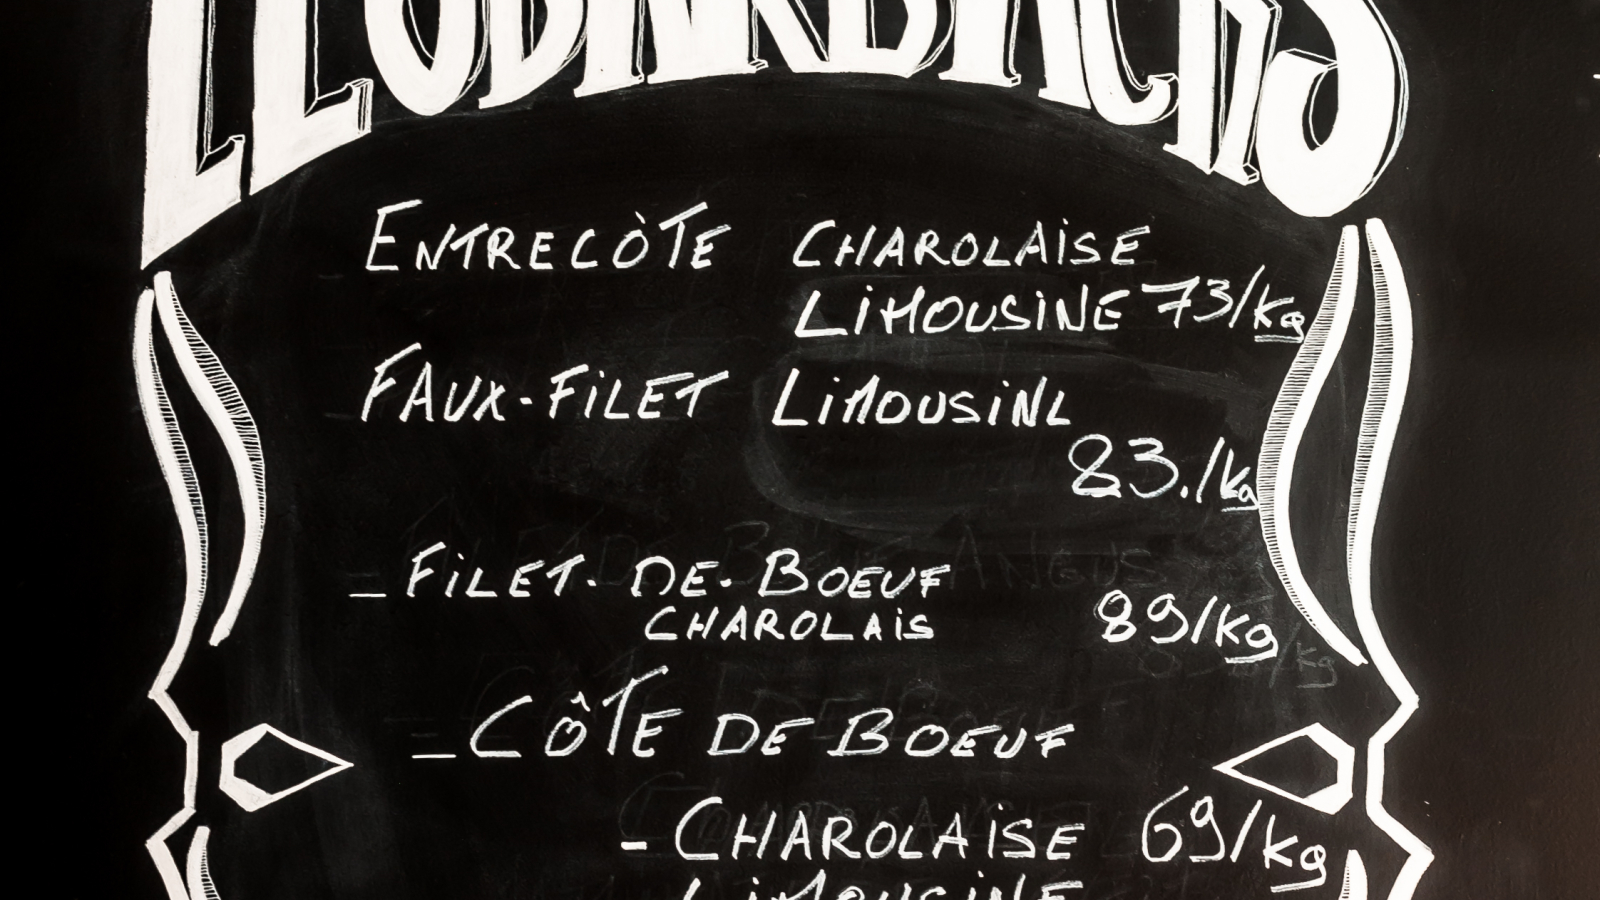 ENTRECÔTE CHAROLAISE
LIMOUSINE 73/kg
FAUX-FILET LIMOUSINE
83./kg
_ FILET-DE-BOEUF
CHAROLAIS 89/kg
_ CÔTE DE BOEUF
- CHAROLAISE 69/kg
LIMOUSINE